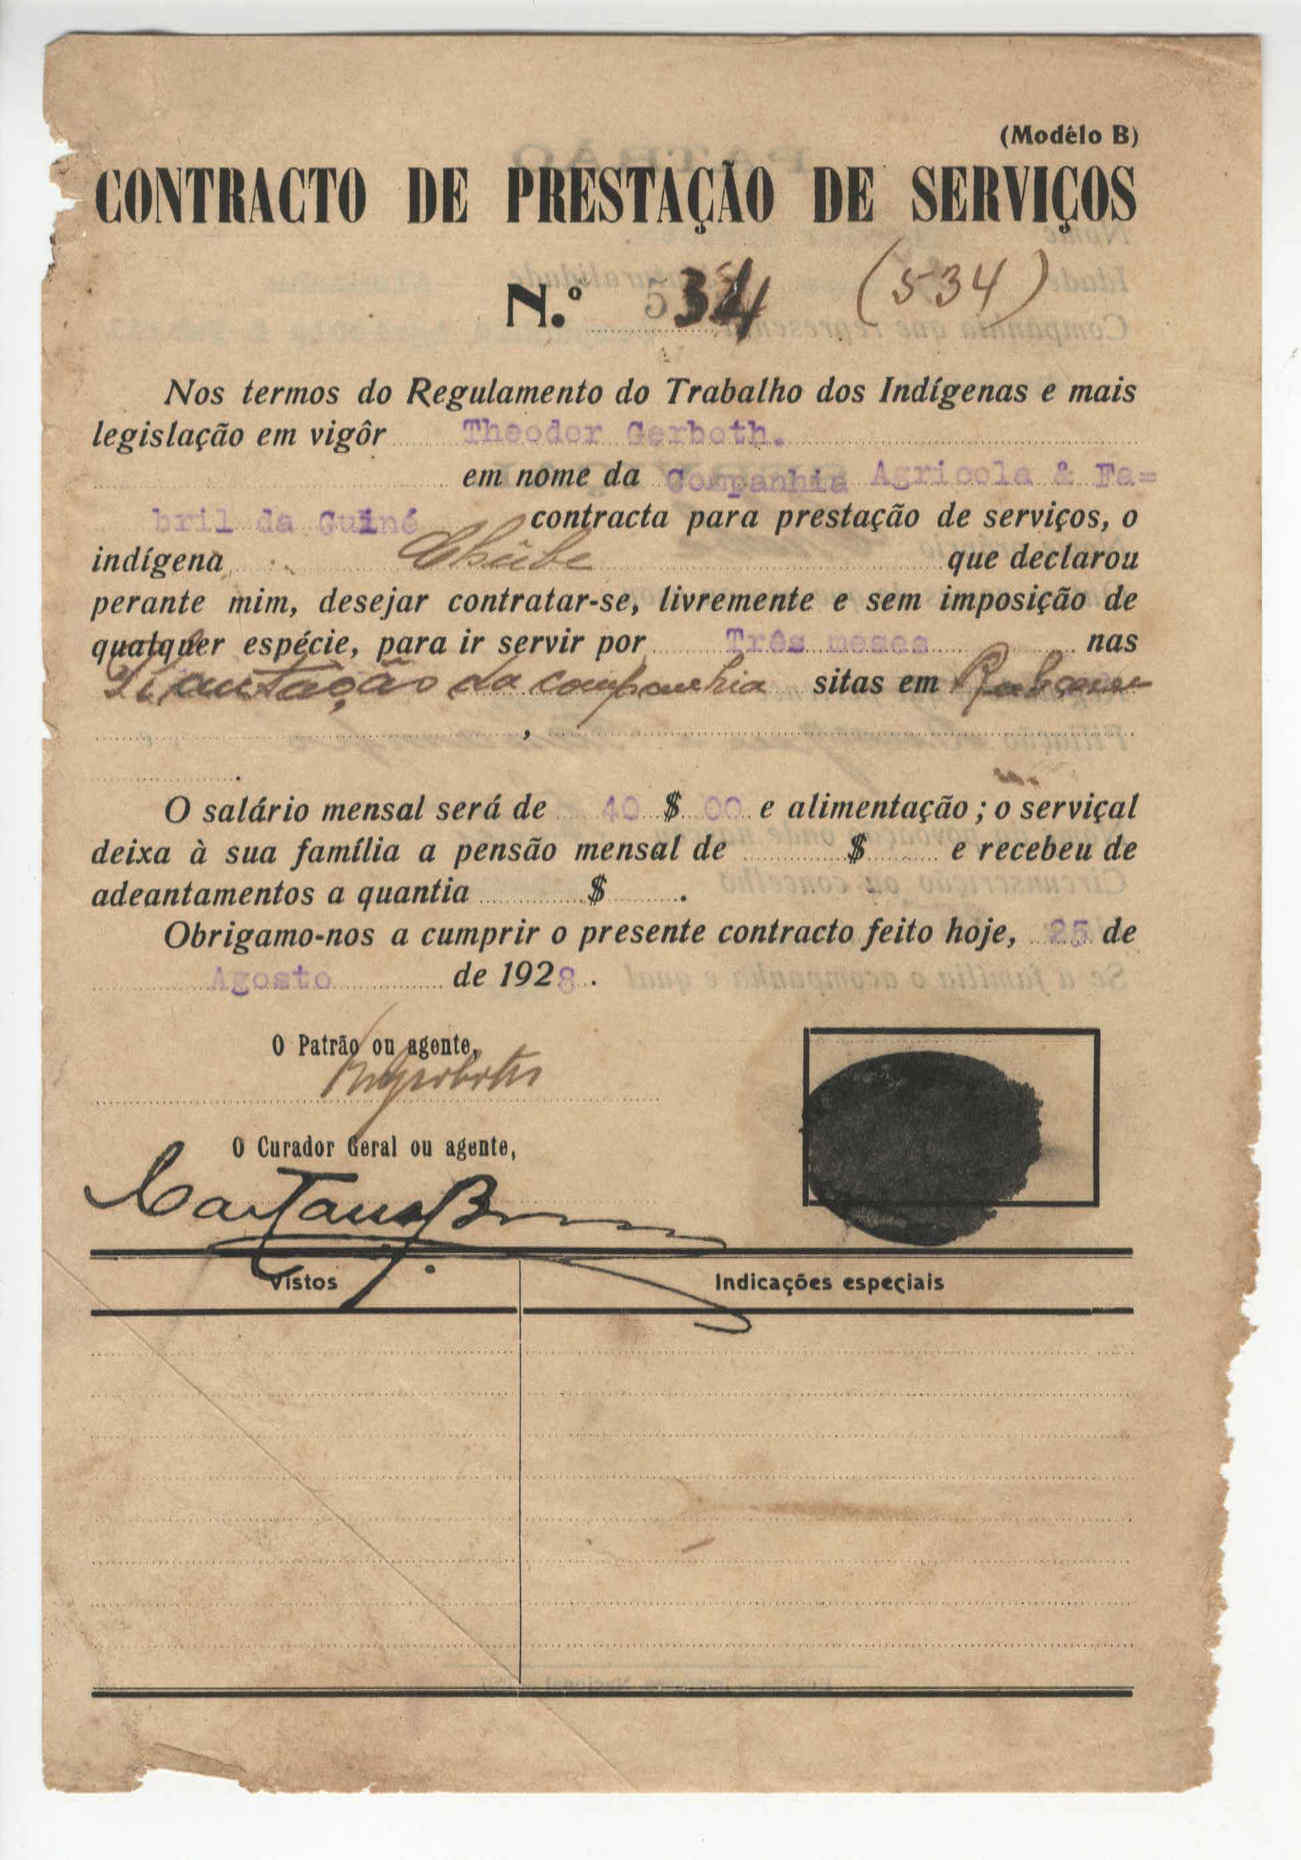 (Modêlo B)
CONTRACTO DE PRESTAÇÃO DE SERVIÇOS
N.º 534 (534)
Nos termos do Regulamento do Trabalho dos Indígenas e mais
legislação em vigôr Theodor Gerboth.
em nome da Companhia Agricola & Fa=
bril da Guiné contracta para prestação de serviços, o
indígena que declarou
perante mim, desejar contratar-se, livremente e sem imposição de
qualquer espécie, para ir servir por Três meses nas
Plantação da companhia sitas em
,
.
O salário mensal será de 40 $ 00 e alimentação; o serviçal
deixa à sua família a pensão mensal de $ e recebeu de
adeantamentos a quantia $ .
Obrigamo-nos a cumprir o presente contracto feito hoje, 25 de
Agosto de 1928.
O Patrão ou agente,
O Curador Geral ou agente,
Vistos Indicações especiais